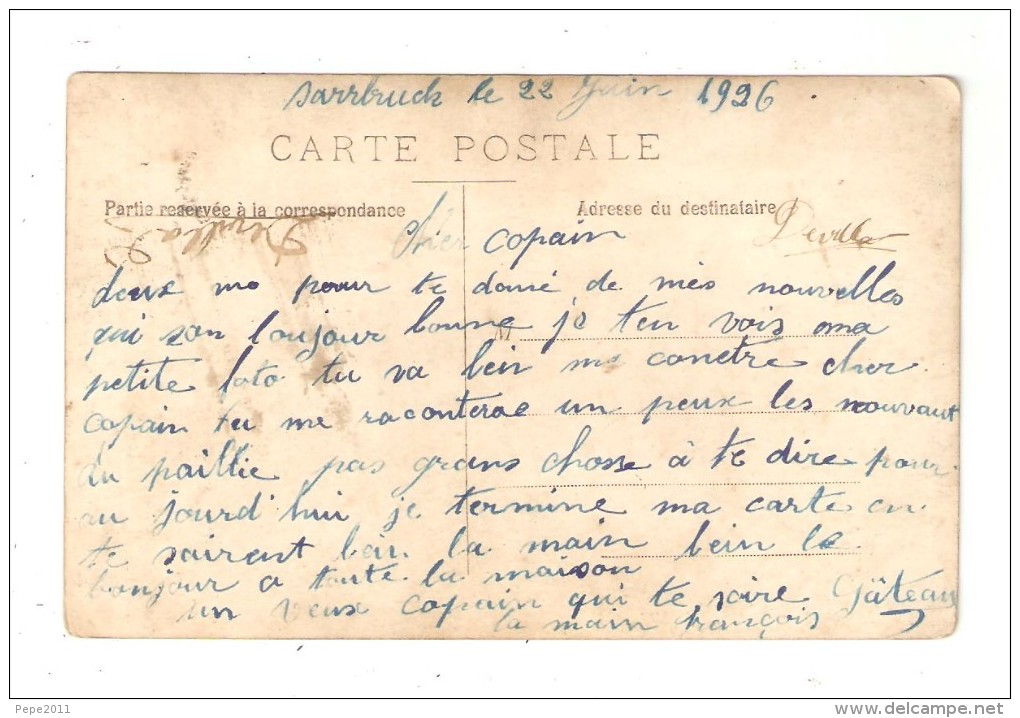 Sarrbruck le 22 Juin 1926
CARTE POSTALE
Partie reservée à la correspondance
Adresse du destinataire
Devilla
Devilla
Cher copain
deux mo pour te doné de mes nouvelles
qui son toujour bonne je ten vois oma
M
petite foto tu va bein me conetre cher
copain tu me raconterae un peux les nouvaut
du paillie pas grans chosse à te dire pour
au jourd'hui je termine ma carte en
te sairent bein la main bein le
bonjour a toute la maison
un veux copain qui te saire Gâteau
la main françois
Pepe2011
delcampe.net